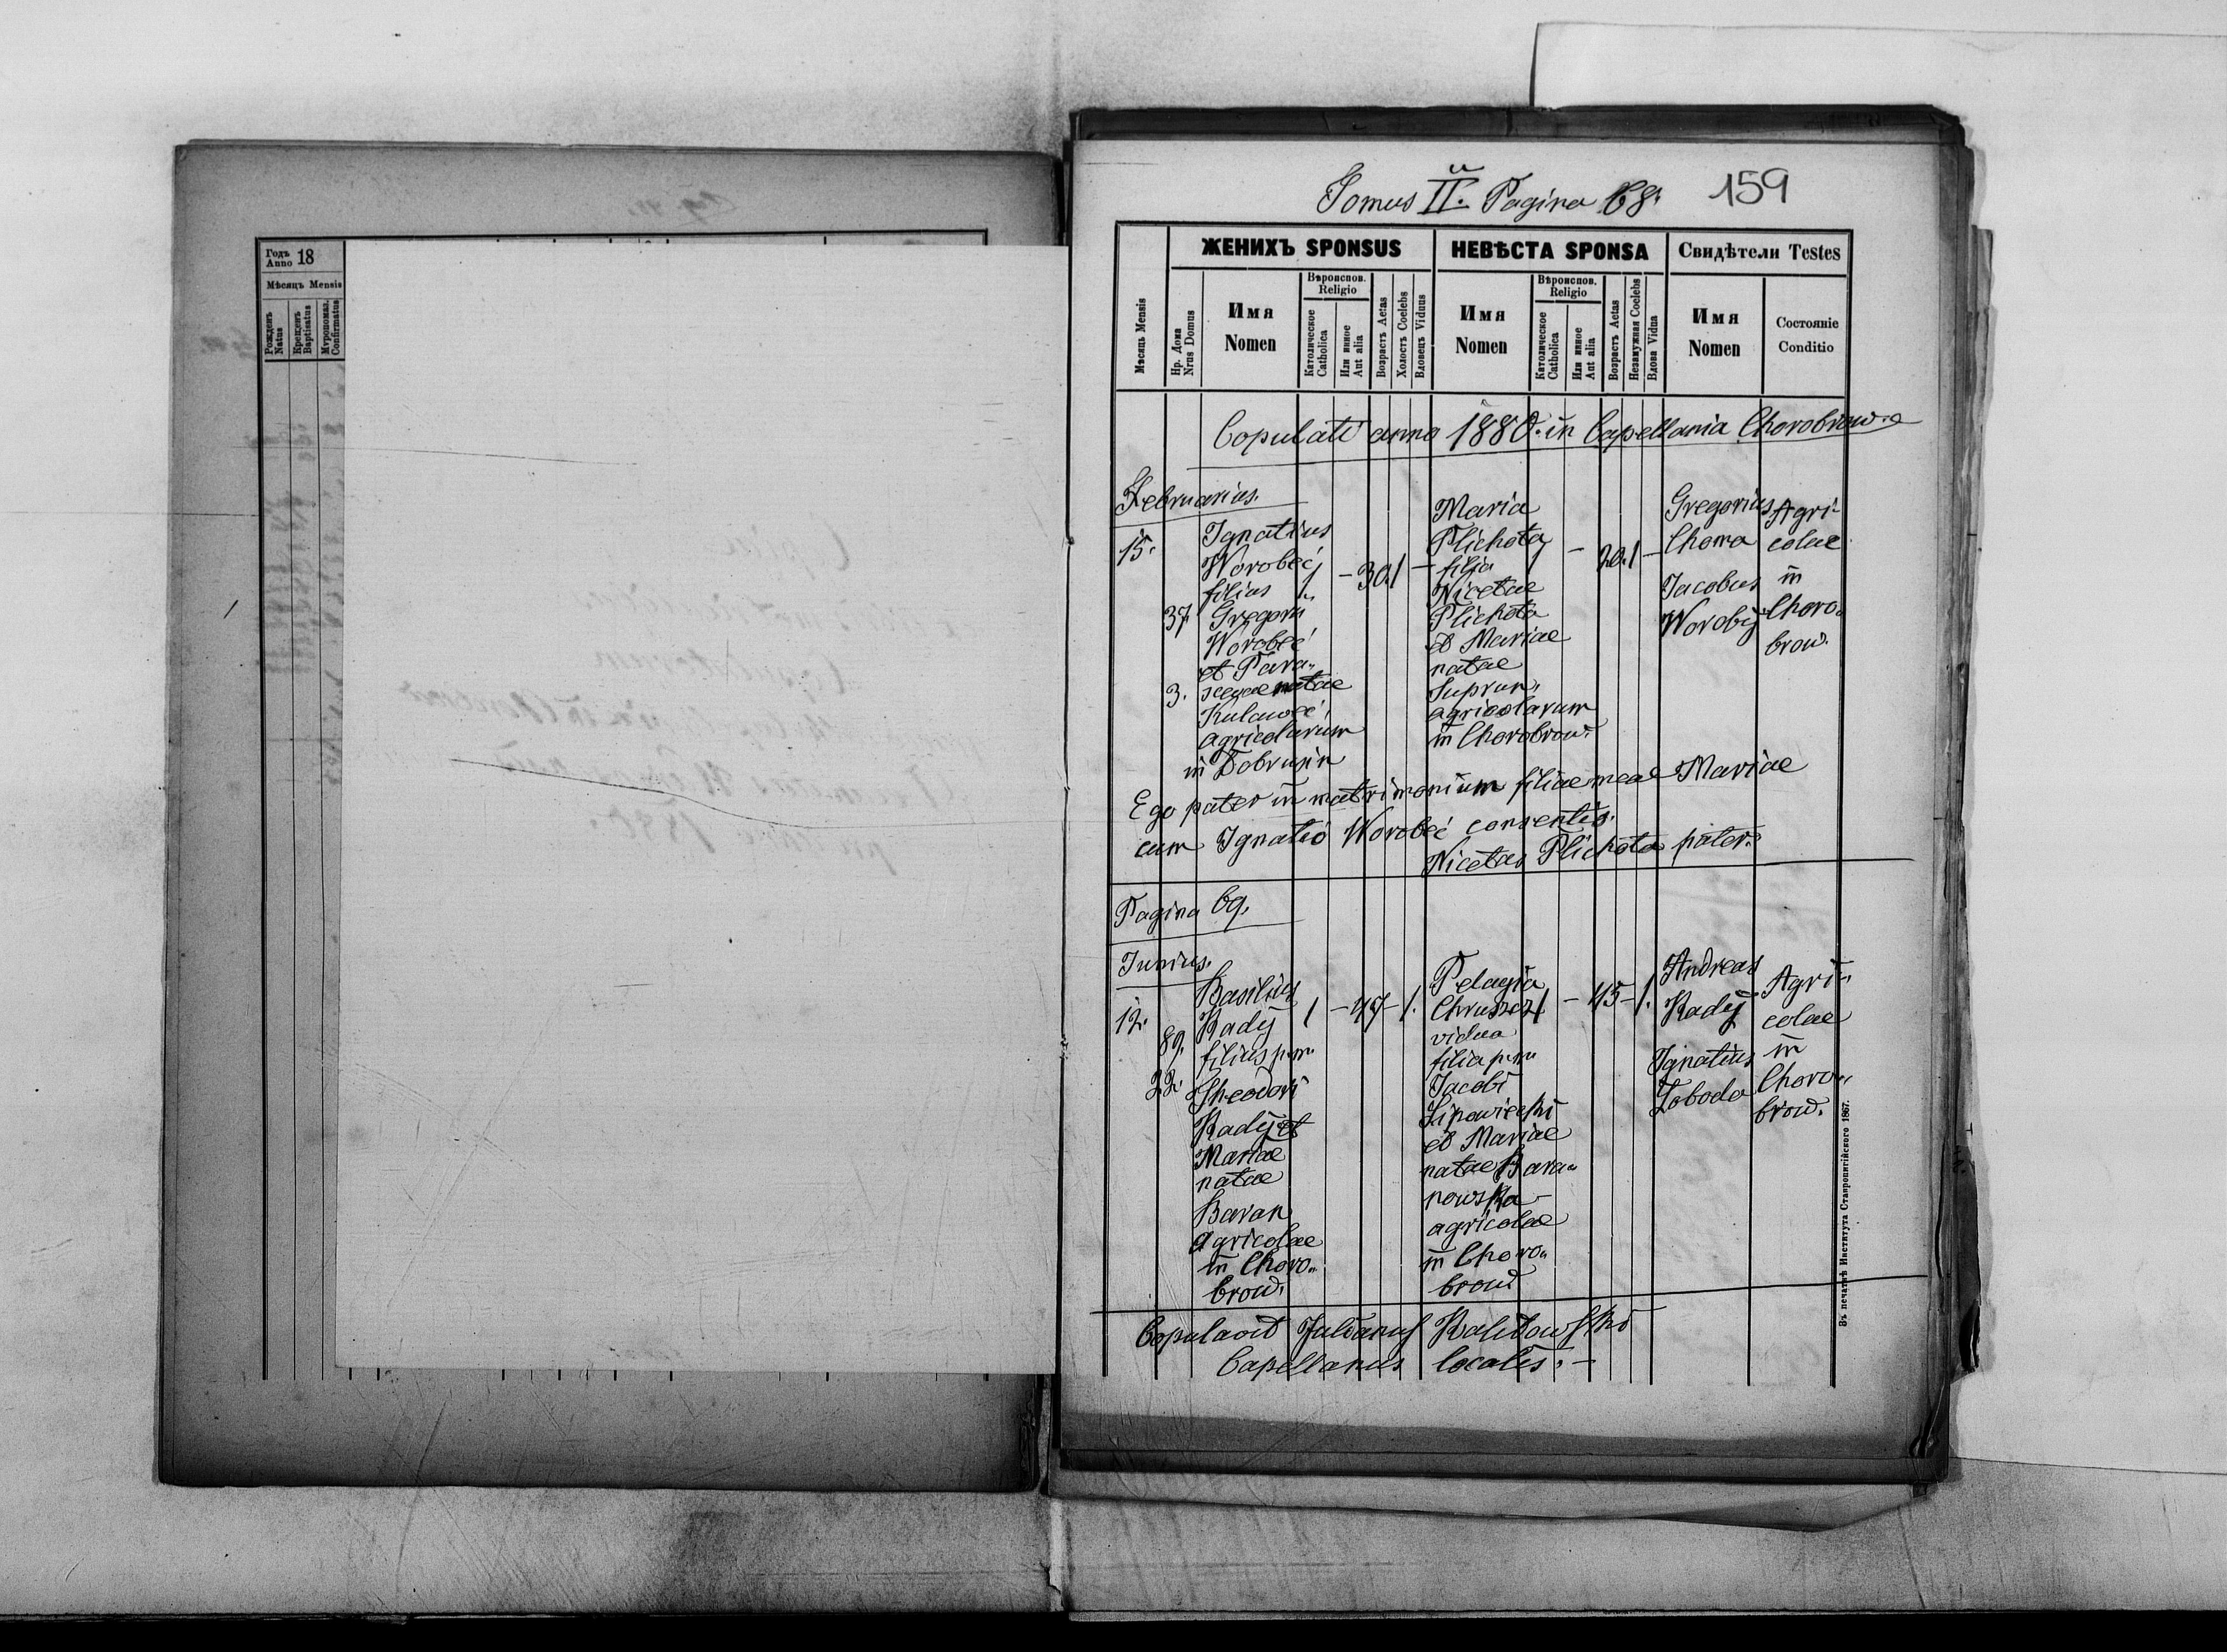 Годъ
Anno 18
Мѣсяцъ Mensis
Рожденъ
Natus
Крещенъ
Baptisatus
Мѵропомаз.
Confirmatus
Tomus II. Pagina 68. 159
ЖЕНИХЪ SPONSUS
НЕВѢСТА SPONSA
Свидѣтели Testes
Мѣсяцъ Mensis
Нр. Дома
Nrus Domus
Имя
Nomen
Вѣроиспов.
Religio
Католическое
Catholica
Или иное
Aut alia
Возрастъ Aetas
Холостъ Coelebs
Вдовецъ Viduus
Имя
Nomen
Вѣроиспов.
Religio
Католическое
Catholica
Или иное
Aut alia
Возрастъ Aetas
Незамужная Coelebs
Вдова Vidua
Имя
Nomen
Состояніе
Conditio
Copulati anno 1880. in Capellania Chorobrow.
Februarius.
15.
37
3.
Ignatius
Worobeć
filius
Gregorii
Worobeć
et Para„
sceuae natae
Kulawec
agricolarum
in Dobrusin
1 – 30. 1 –
Maria
Plichota
filia
Nicetae
Plichota
et Mariae
natae
Suprun„
agricolarum
in Chorobrow.
1 – 20. 1 –
Gregorius
Choma
Jacobus
Worobij
Agri„
colae
in
Choro„
brow.
Ego pater in matrimonium filiae meae Mariae
cum Ignatio Worobeć consentio.
Nicetas Plichota pater.
Pagina 69.
Junius.
12.
89.
22.
Basilius
Kadij
filius p.m.
Theodori
Kadij et
Mariae
natae
Baran
agricolae
in Choro„
brow.
1 – 47 – 1.
Pelagia
Chruszcz
vidua
filia p.m.
Jacobi
Lipowiecki
et Mariae
natae Bara„
nowska
agricolae
in Choro„
brow
1 – 45 – 1.
Andreas
Kadij
Ignatius
Łoboda
Agri„
colae
in
Choro„
brow.
Copulavit Julianus Kalitowski
Capellanus localis. –
Въ печатнѣ Института Ставропигійского 1867.